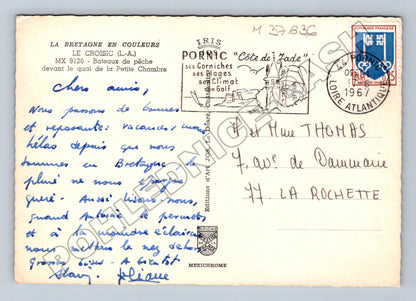 M 37636
LA BRETAGNE EN COULEURS
LE CROISIC (L.-A.)
MX 9126 - Bateaux de pêche
devant le quai de la Petite Chambre
IRIS
PORNIC "Côte de Jade"
ses Corniches
ses Plages
son Climat
son Golf
1967
LOIRE ATLANTIQUE
Chers amis,
Nous passons de bonnes
et reposantes vacances, mais
hélas depuis que nous
sommes en Bretagne la
pluie ne nous
guère. Aussi lisons-nous,
quand Antoine le permet
et à la moindre éclaircie
nous mettons le nez dehors
Grosses bises - A bientôt
Eliane
M et Mme THOMAS
7, av. de Dammarie
77. LA ROCHETTE
MEXICHROME
POHLEDNICE-NASH